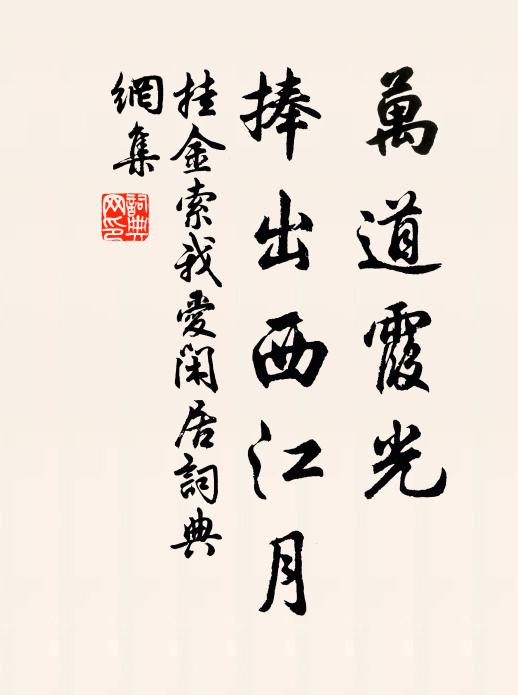 萬道霞光
捧出西江月
挂金索我愛閑居詞典
網集
詞典
网印